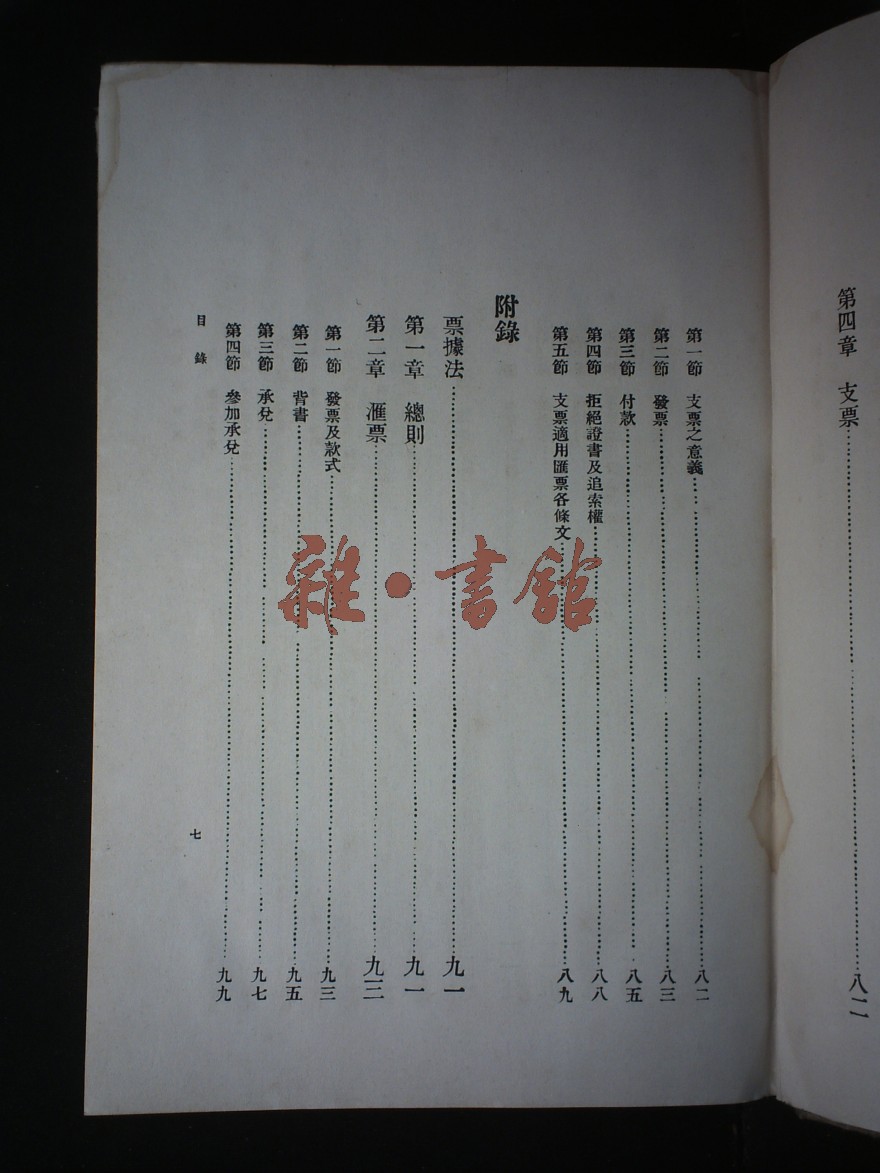 第四章 支票……八二
第一節 支票之意義……八二
第二節 發票……八三
第三節 付款……八五
第四節 拒絕證書及追索權……八八
第五節 支票適用匯票各條文……八九
附錄
票據法……九一
第一章 總則……九一
第二章 滙票……九三
第一節 發票及款式……九三
第二節 背書……九五
第三節 承兌……九七
第四節 參加承兌……九九
目錄
七
雜·書館